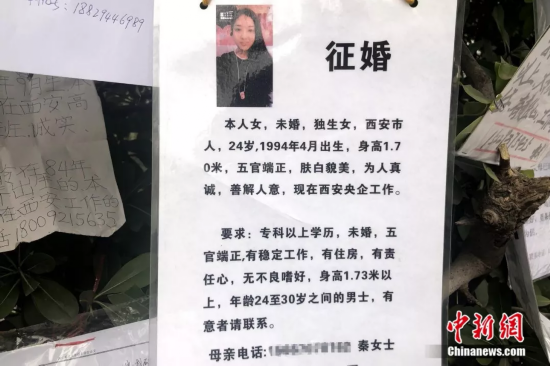 18829446989
征婚
本人女，未婚，独生女，西安市
人，24岁,1994年4月出生，身高1.7
0米，五官端正，肤白貌美，为人真
诚，善解人意，现在西安央企工作。
要求：专科以上学历，未婚，五
官端正,有稳定工作，有住房，有责
任心，无不良嗜好，身高1.73米以
上，年龄24至30岁之间的男士，有
意者请联系。
母亲电话: 秦女士
在西安高
诚实
在西安工作的
18009215635
中新网
Chinanews.com